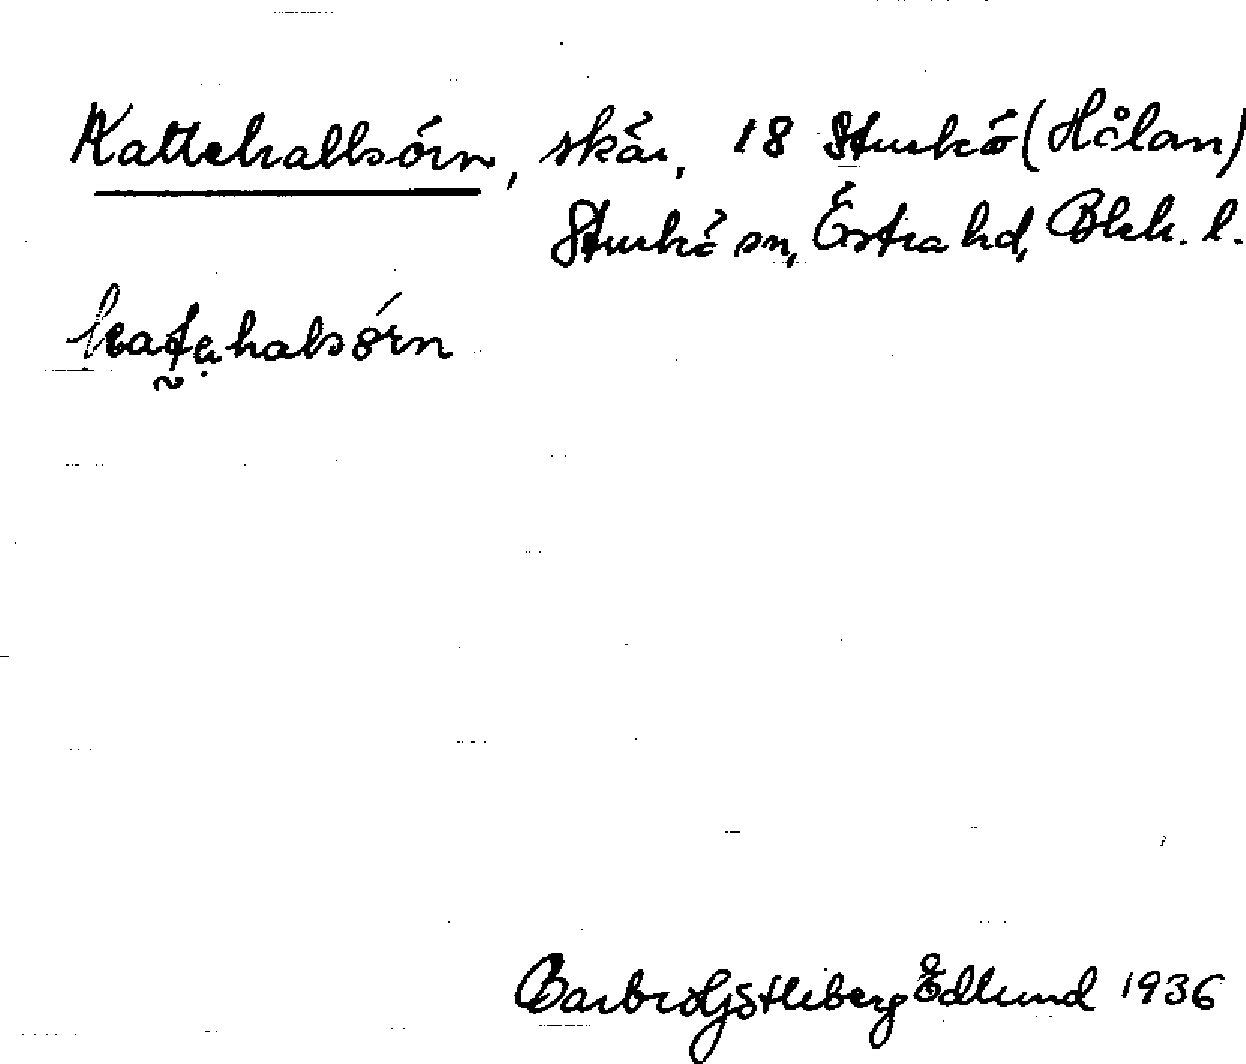 Kattehallsörn, skär, 18 Sturkö (Hålan)
Sturkö sn, Östra hd, Blek. l.
katahalsörn
Barbro Edlund 1936